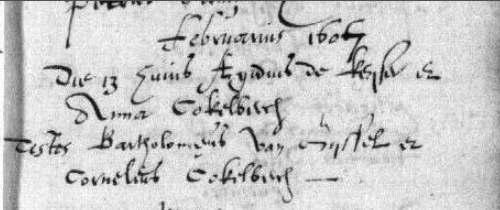 Februarius 1606
Die 13 huius Egidius de keyser et
Anna Cokelbirch
Testes Bartholomeus Van Rijssel et
Cornelius Cokelbirch